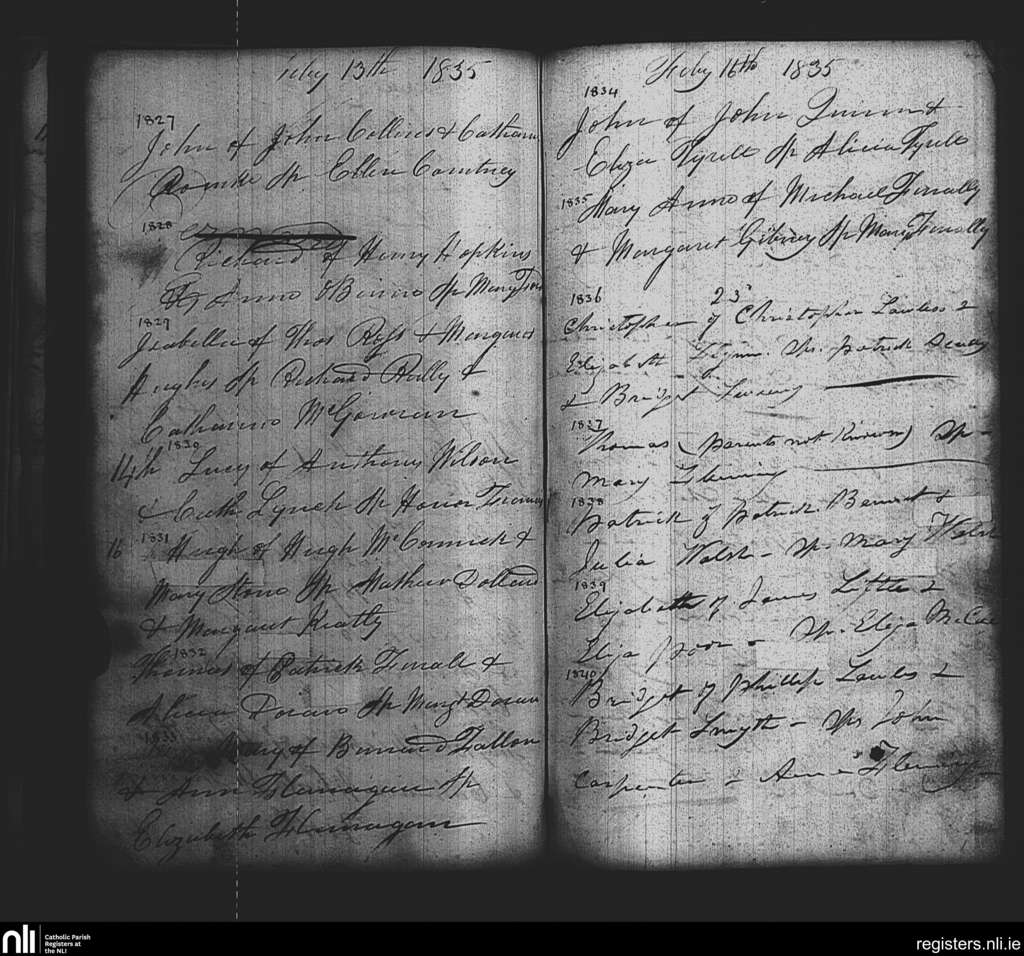 Feby 13th 1835
1827
John of John Collins & Catharine
Rourke Sp Ellen Courtney
1828
Richard of Henry Hopkins
& Anne O Beirne Sp Mary
1829
Isabella of Thos Ross & Margaret
Hughes Sp Richard Reilly &
Catharine McGowran
1830
14th Lucy of Anthony Wilson
& Cath Lynch Sp Honor
16 1831 Hugh of Hugh McCormick &
Mary Sp Mathew Dollard
& Margaret Keatly
1832
Thomas of Patrick &
Alicia Doran Sp Margt Doran
1833
Mary of Bernard Fallon
& Ann Flanagan Sp
Elizabeth Flanagan
Feby 16th 1835
1834
John of John Quinn &
Eliza Tyrell Sp Alicia Tyrell
1835 Mary Anne of Michael Finally
& Margaret Gibney Sp Mary Finally
1836 23d
Christopher of Christopher Lawless &
Elizabeth Flynn. Sp. Patrick
& Bridget
1837
Thomas (parents not Known) Sp-
Mary Fleming
1838
Patrick of Patrick Bennet &
Julia Walsh - Sp. Mary Walsh
1839
Elizabeth of James &
Eliza poor - Sp. Eliza McCue
1840
Bridget of Phillip Lawless &
Bridget Smyth - Sp John
Carpenter & Anne Fleming
nli
Catholic Parish
Registers at
the NLI
registers.nli.ie